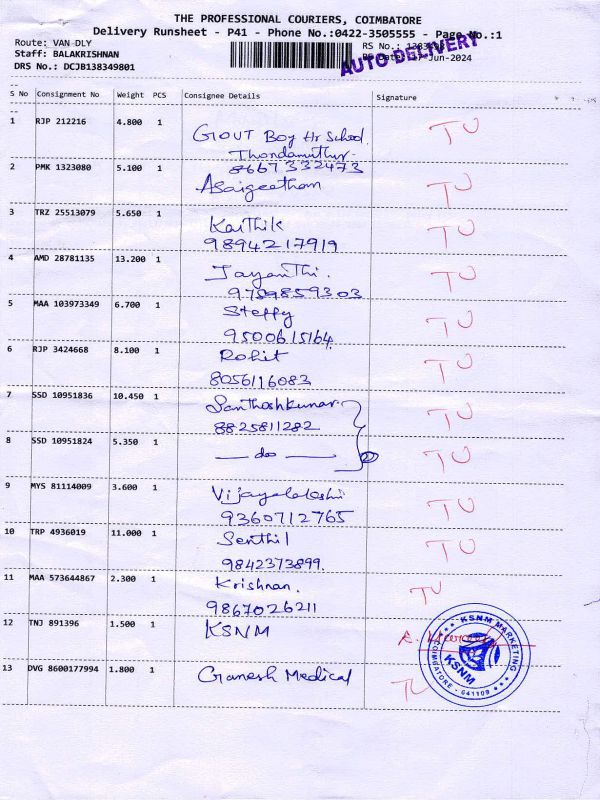 THE PROFESSIONAL COURIERS, COIMBATORE
Delivery Runsheet - P41 - Phone No.:0422-3505555 - Page No.:1
Route: VAN DLY
Staff: BALAKRISHNAN
DRS No.: DCJB138349801
RS No.:
RS Date: 17-Jun-2024
AUTO DELIVERY
S No Consignment No Weight PCS Consignee Details Signature
1 RJP 212216 4.800 1 GOUT Boy Hr School. TU
Thondamuthur.
8667332473
2 PMK 1323080 5.100 1 Asaigeetham TU
3 TRZ 25513079 5.650 1 Karthik TU
9894217919
4 AMD 28781135 13.200 1 Jayanthi. TU
9789859303
5 MAA 103973349 6.700 1 Steffy TU
9500615164.
6 RJP 3424668 8.100 1 Rohit TU
8056116083
7 SSD 10951836 10.450 1 Santhoshkumar. TU
8825811282
8 SSD 10951824 5.350 1 — do — TU
9 MYS 81114009 3.600 1 Vijayalakshi TU
9360712765
10 TRP 4936019 11.000 1 Senthil TU
9842373899.
11 MAA 573644867 2.300 1 Krishnan. TU
9867026211
12 TNJ 891396 1.500 1 KSNM
KSNM MARKETING
KSNM
COIMBATORE - 641109
13 DVG 8600177994 1.800 1 Ganesh Medical TU